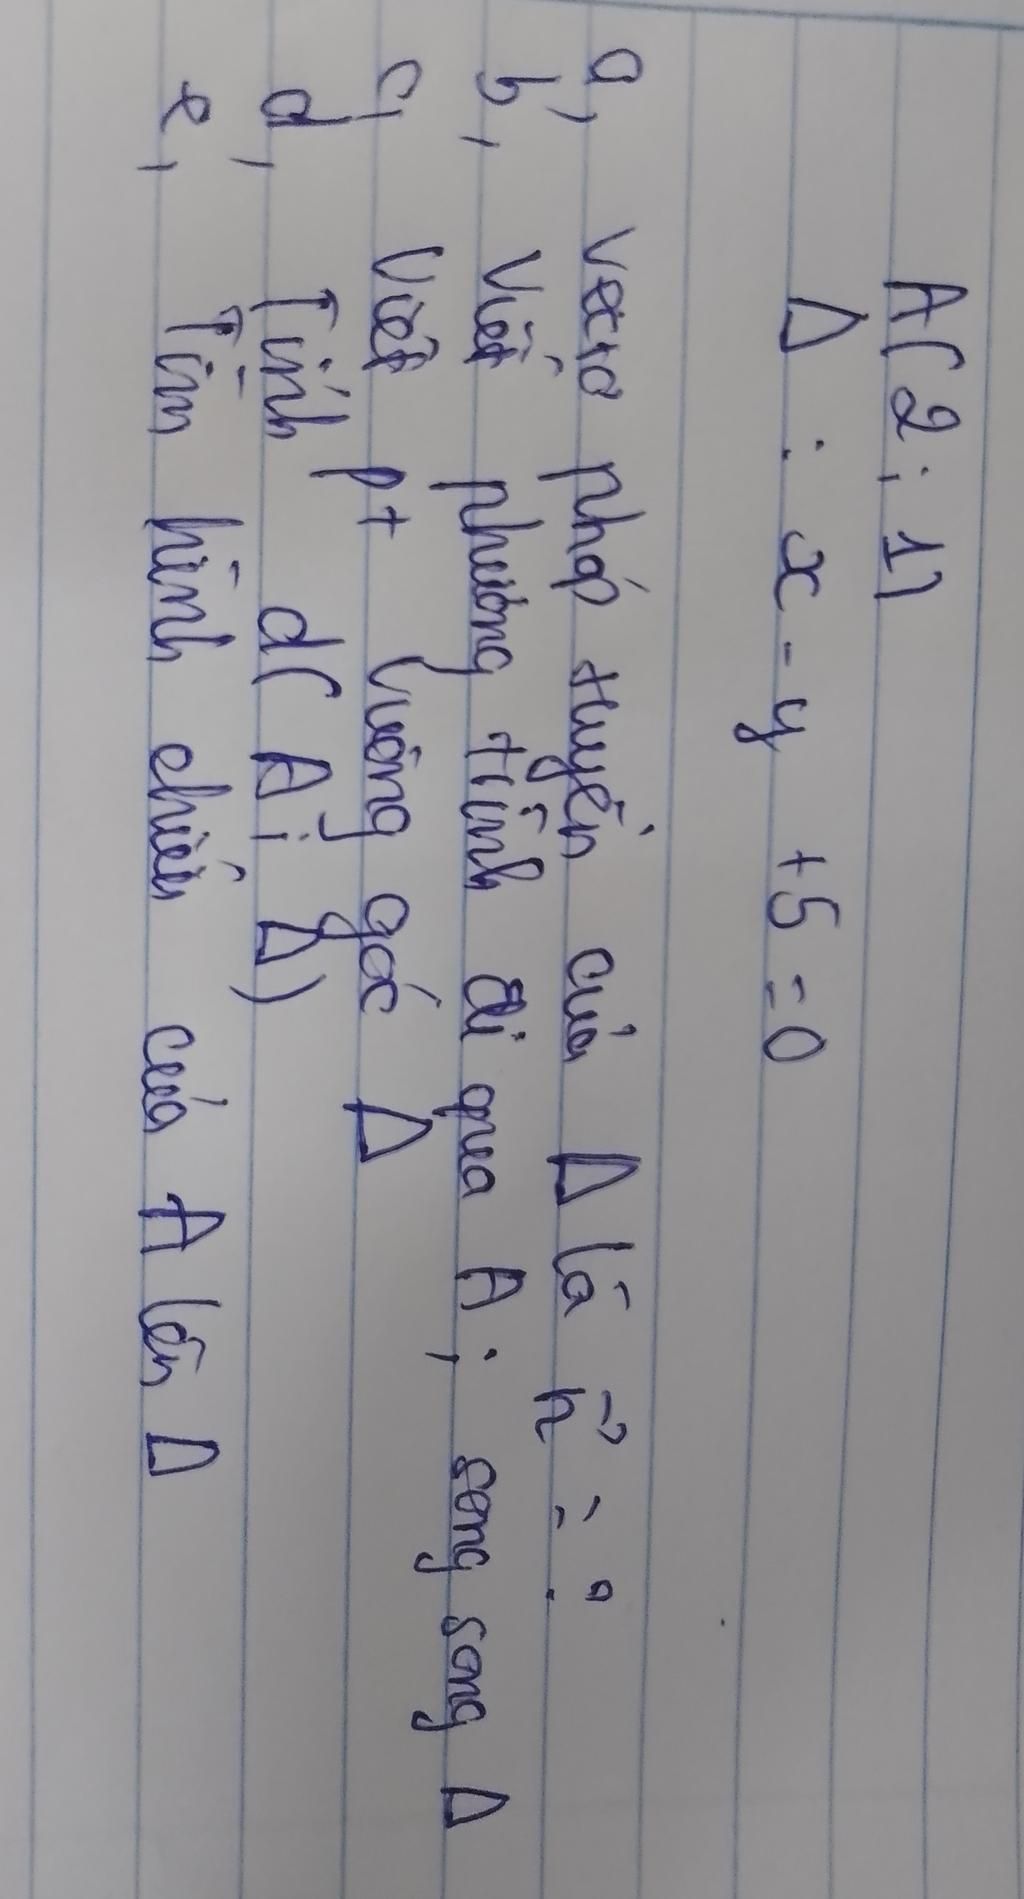 A(2;1)
Δ : x - y + 5 = 0
a, vectơ pháp tuyến của Δ là n⃗ = ?
b, Viết phương trình đi qua A; song song Δ
c, Viết pt vuông góc Δ
d, Tính d(A; Δ)
e, Tìm hình chiếu của A lên Δ